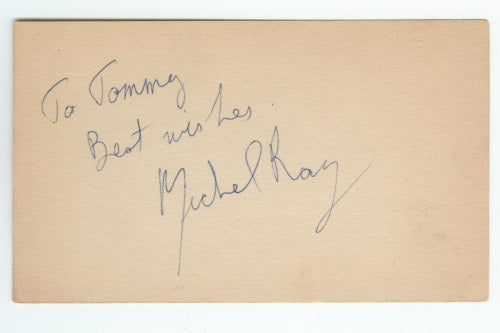 To Tommy
Best wishes.
Michel Ray